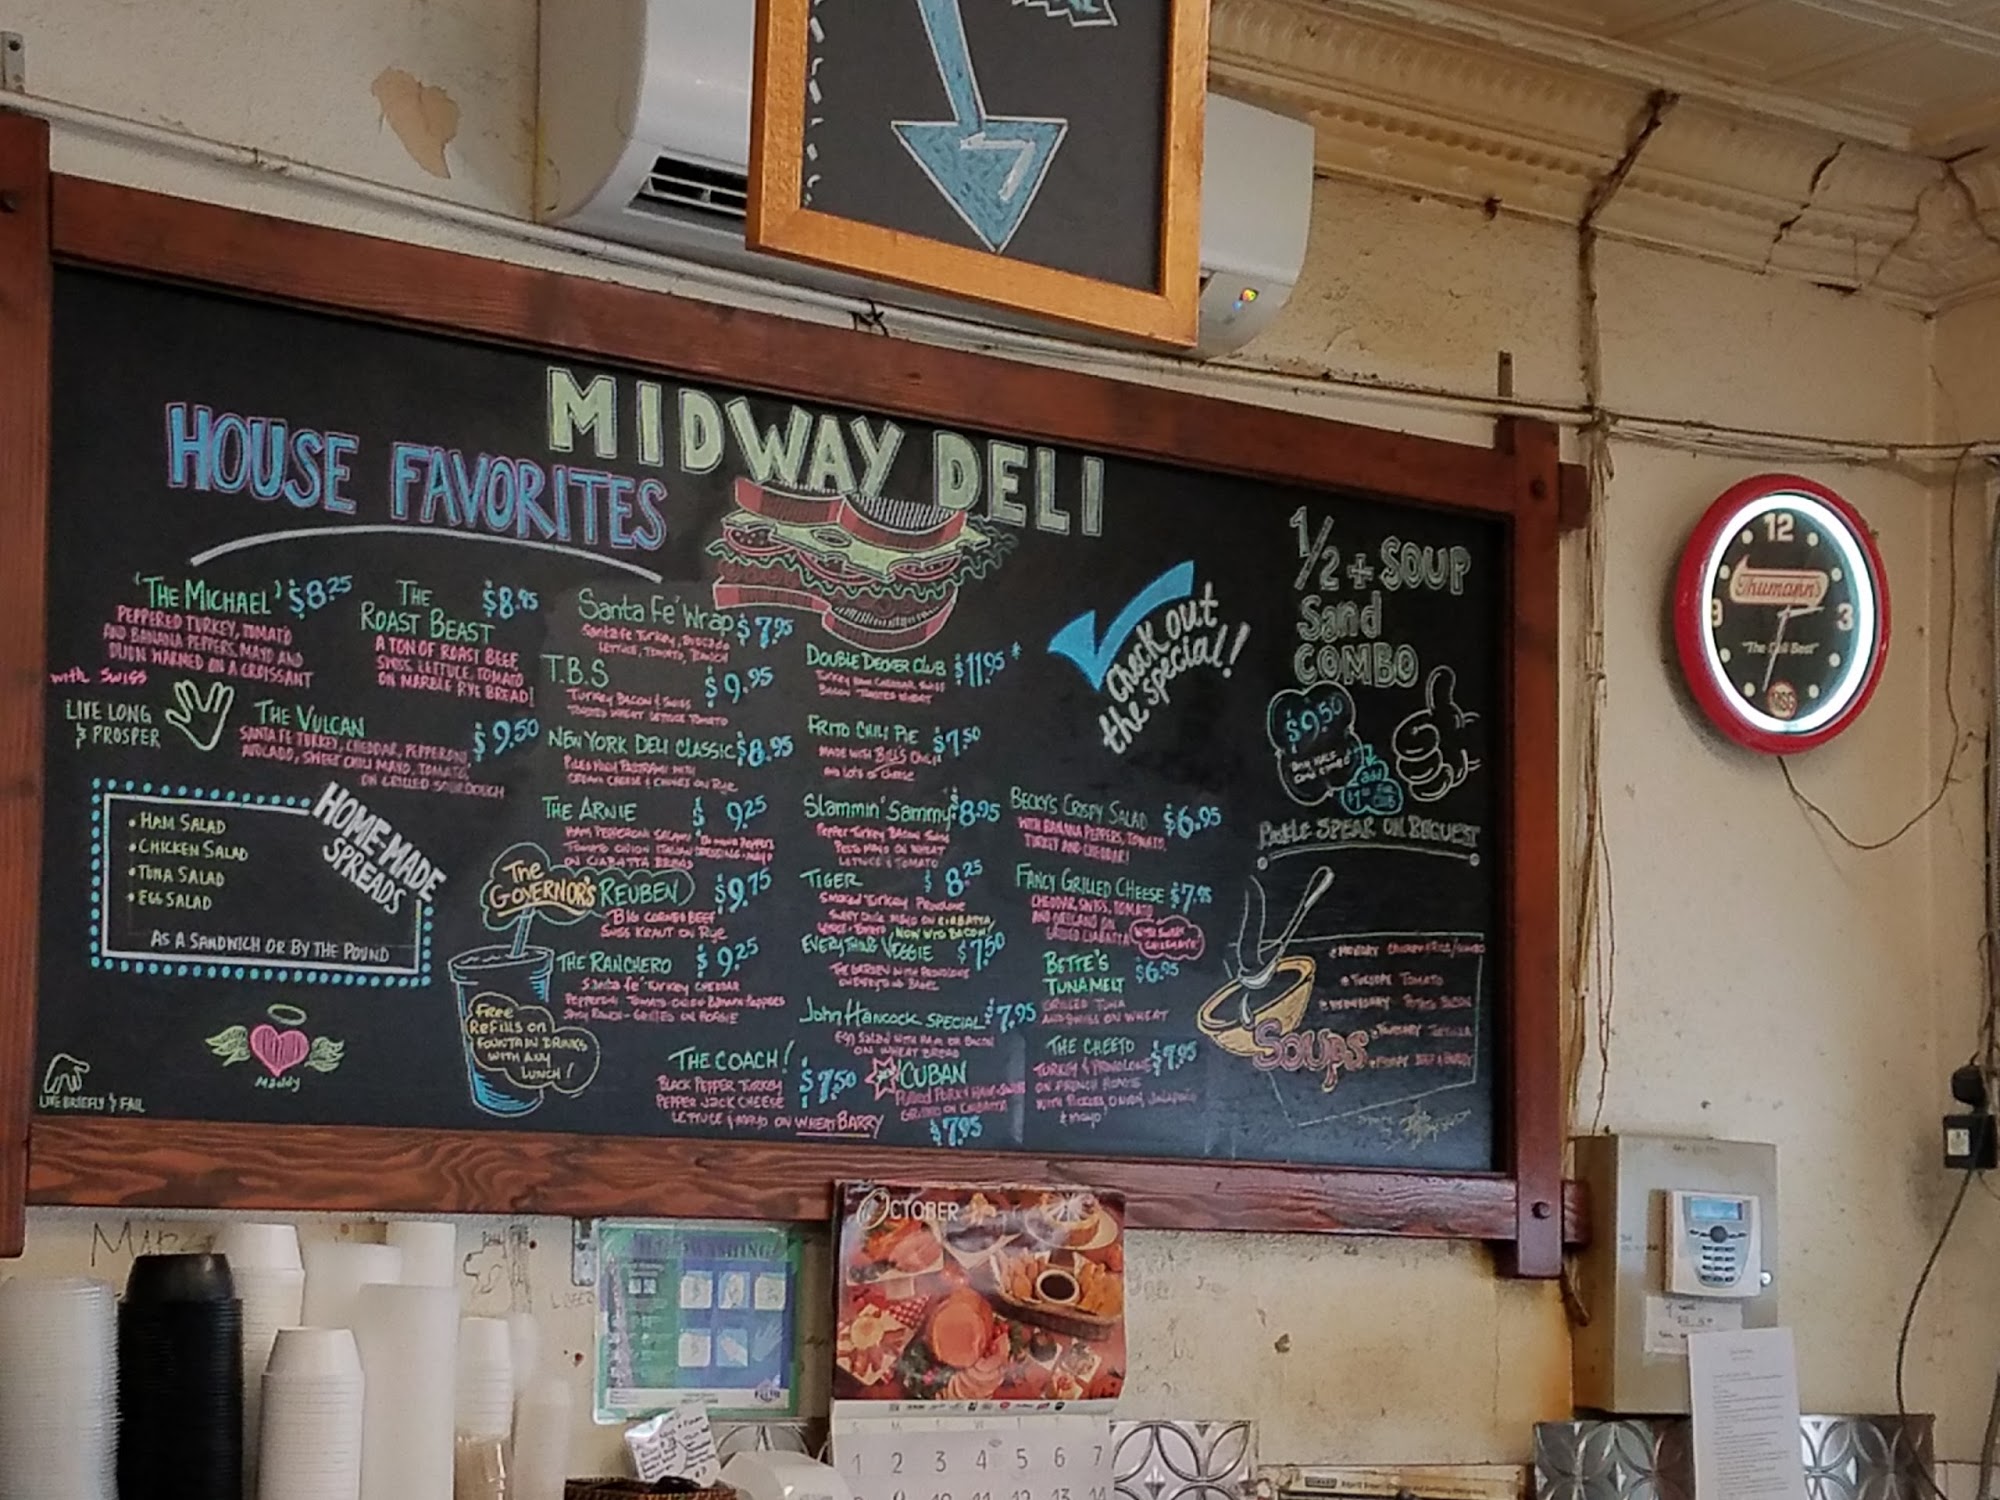 MIDWAY DELI
HOUSE FAVORITES
'THE MICHAEL' $8.25
PEPPERED TURKEY, TOMATO
AND BANANA PEPPERS, MAYO AND
DIJON WARMED ON A CROISSANT
with SWISS
THE
ROAST BEAST $8.95
A TON OF ROAST BEEF,
SWISS, LETTUCE, TOMATO
ON MARBLE RYE BREAD!
LIVE LONG
& PROSPER
THE VULCAN $9.50
SANTA FE TURKEY, CHEDDAR, PEPPERONI,
AVOCADO, SWEET CHILI MAYO, TOMATO,
ON GRILLED SOURDOUGH
HOMEMADE
SPREADS
• HAM SALAD
• CHICKEN SALAD
• TUNA SALAD
• EGG SALAD
AS A SANDWICH OR BY THE POUND
Maddy
LIVE BRIEFLY & FAIL
Santa Fe' Wrap $7.95
Santa fe Turkey, Avocado
LETTUCE, TOMATO, RANCH
T.B.S $9.95
TURKEY BACON & SWISS
TOASTED WHEAT LETTUCE TOMATO
NEW YORK DELI CLASSIC $8.95
PILED HIGH PASTRAMI WITH
CREAM CHEESE & CHIVES ON RYE
THE ARNIE $9.25
HAM PEPPERONI SALAMI
TOMATO ONION ITALIAN DRESSING & MAYO
ON CIABATTA BREAD
The
GOVERNOR'S REUBEN $9.75
BIG CORNED BEEF
SWISS KRAUT ON RYE
THE RANCHERO $9.25
Santa fe' TURKEY CHEDDAR
PEPPERONI TOMATO ONION BANANA PEPPERS
SPICY RANCH - GRILLED ON HOAGIE
FREE
REFILLS ON
FOUNTAIN DRINKS
WITH ANY
LUNCH!
THE COACH! $7.50
BLACK PEPPER TURKEY
PEPPER JACK CHEESE
LETTUCE & MAYO ON WHEATBARRY
DOUBLE DECKER CLUB $11.95
TURKEY HAM CHEDDAR SWISS
BACON TOASTED WHEAT
FRITO CHILI PIE $7.50
MADE WITH BILL'S CHILI
AND LOTS OF CHEESE
Slammin' Sammy $8.95
PEPPER TURKEY BACON SWISS
PESTO MAYO ON WHEAT
LETTUCE & TOMATO
TIGER $8.25
SMOKED TURKEY PROVOLONE
MAYO ON CIABATTA,
NOW WITH BACON!
EVERYTHING VEGGIE $7.50
THE GARDEN WITH PROVOLONE
ON EVERYTHING BAGEL
John Hancock SPECIAL $7.95
EGG SALAD WITH HAM OR BACON
ON WHEAT BREAD
CUBAN
Pulled Pork, HAM, SWISS
GRILLED ON CIABATTA
$7.95
Check out
the special!
BECKY'S CRISPY SALAD $6.95
WITH BANANA PEPPERS, TOMATO,
TURKEY AND CHEDDAR!
FANCY GRILLED CHEESE $7.95
CHEDDAR, SWISS, TOMATO
AND OREGANO ON
GRILLED CIABATTA
BETTE'S
TUNA MELT $6.95
GRILLED TUNA
AND SWISS ON WHEAT
THE CHEETO $7.95
TURKEY & PROVOLONE
ON FRENCH HOAGIE
WITH PICKLES, ONION, JALAPENO
& MAYO
1/2 + SOUP
Sand
COMBO
$9.50
add
PICKLE SPEAR ON REQUEST
SOUPS
TUESDAY TOMATO
WEDNESDAY - POTATO BACON
THURSDAY TORTILLA
12
3
9
Thumann's
"The Deli Best"
OCTOBER
S M T W T F S
1 2 3 4 5 6 7